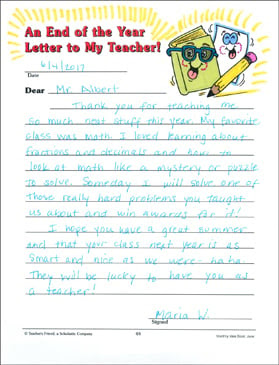 An End of the Year
Letter to My Teacher!
6/4/2017
Date
Dear Mr. Albert
Thank you for teaching me
so much neat stuff this year. My favorite
class was math I loved learning about
fractions and decimals and how to
look at math like a mystery or puzzle
to solve. Someday I will solve one of
those really hard problems you taught
us about and win awards for it!
I hope you have a great summer
and that your class next year is as
smart and nice as we were- haha.
They will be lucky to have you as
a teacher!
Maria W.
Signed
© Teacher's Friend, a Scholastic Company
65